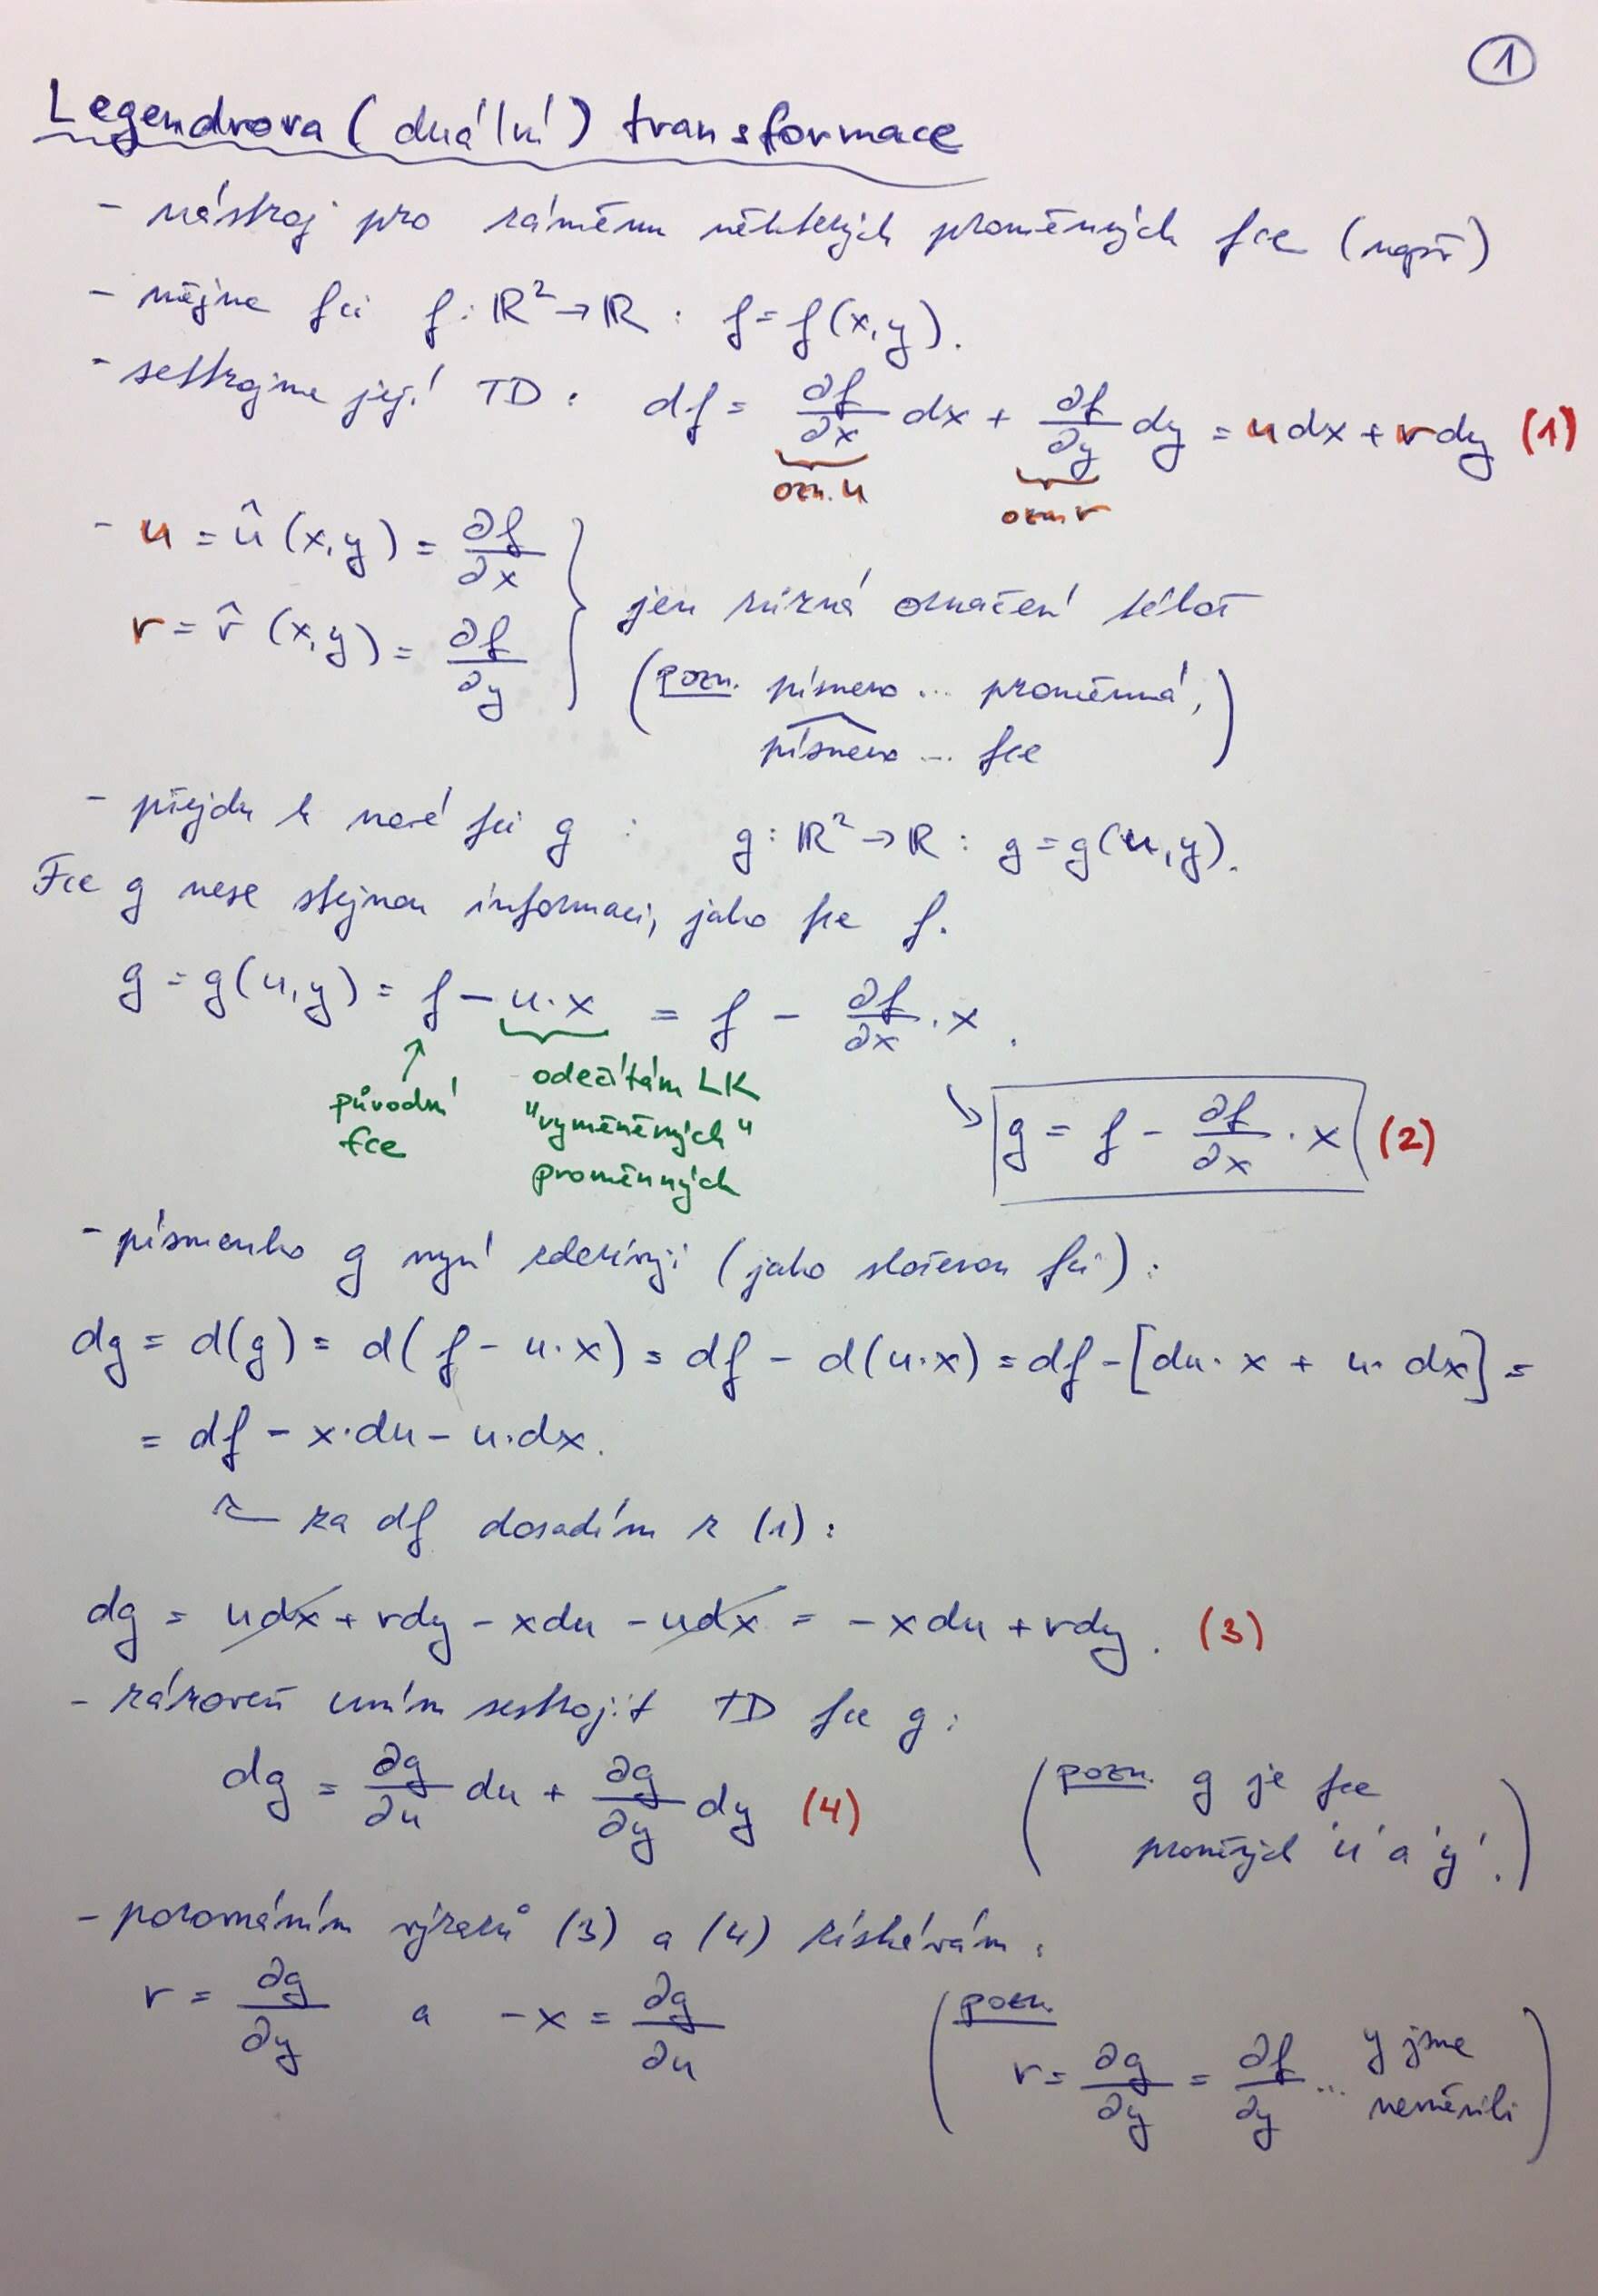 1
Legendrova (duální) transformace
- nástroj pro záměnu některých proměnných fce (např)
- mějme fci f: ℝ² → ℝ : f = f(x,y).
- sestrojme její TD : df = ∂f/∂x dx + ∂f/∂y dy = u dx + v dy (1)
ozn. u ozn. v
- u = û (x,y) = ∂f/∂x
v = v̂ (x,y) = ∂f/∂y
jen různá označení téhož
(pozn. písmeno ... proměnná,
písmeno ... fce)
- přejdu k nové fci g : g: ℝ² → ℝ : g = g(u,y).
Fce g nese stejnou informaci, jako fce f.
g = g(u,y) = f - u·x = f - ∂f/∂x · x .
původní fce
odečítám LK
"vyměněných"
proměnných
g = f - ∂f/∂x · x (2)
- písmenko g nyní zderivuji (jako složenou fci) :
dg = d(g) = d(f - u·x) = df - d(u·x) = df - [du· x + u· dx] =
= df - x·du - u·dx.
za df dosadím z (1) :
dg = udx + vdy - xdu - udx = - xdu + vdy . (3)
- zároveň umím sestrojit TD fce g :
dg = ∂g/∂u du + ∂g/∂y dy (4)
(pozn. g je fce
proměných 'u' a 'y'.)
- porovnáním výrazů (3) a (4) získávám :
v = ∂g/∂y a -x = ∂g/∂u
(pozn.
v = ∂g/∂y = ∂f/∂y ... y jsme
neměnili)